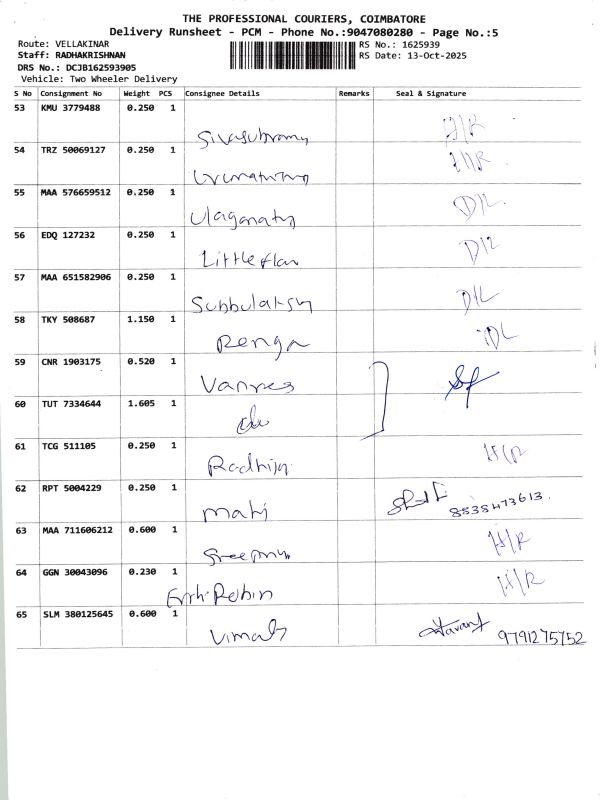 THE PROFESSIONAL COURIERS, COIMBATORE
Delivery Runsheet - PCM - Phone No.:9047080280 - Page No.:5
Route: VELLAKINAR RS No.: 1625939
Staff: RADHAKRISHNAN RS Date: 13-Oct-2025
DRS No.: DCJB162593905
Vehicle: Two Wheeler Delivery
S No Consignment No Weight PCS Consignee Details Remarks Seal & Signature
53 KMU 3779488 0.250 1
H/R
54 TRZ 50069127 0.250 1
H/R
55 MAA 576659512 0.250 1
Ulaganathn D/L
56 EDQ 127232 0.250 1
Little flow D/L
57 MAA 651582906 0.250 1
D/L
58 TKY 508687 1.150 1
Renga D/L
59 CNR 1903175 0.520 1
60 TUT 7334644 1.605 1
do
61 TCG 511105 0.250 1
Radhija H/R
62 RPT 5004229 0.250 1
mahi 8535473613
63 MAA 711606212 0.600 1
H/R
64 GGN 30043096 0.230 1
Robin H/R
65 SLM 380125645 0.600 1
Vimal 9791275752